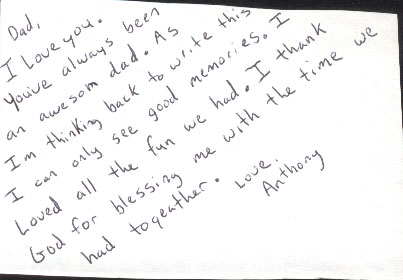 Dad,
I Love you.
Youive always been
an awesom dad. As
Im thinking back to write this
I can only see good memories. I
Loved all the fun we had. I thank
God for blessing me with the time we
had togeather. Love.
Anthony